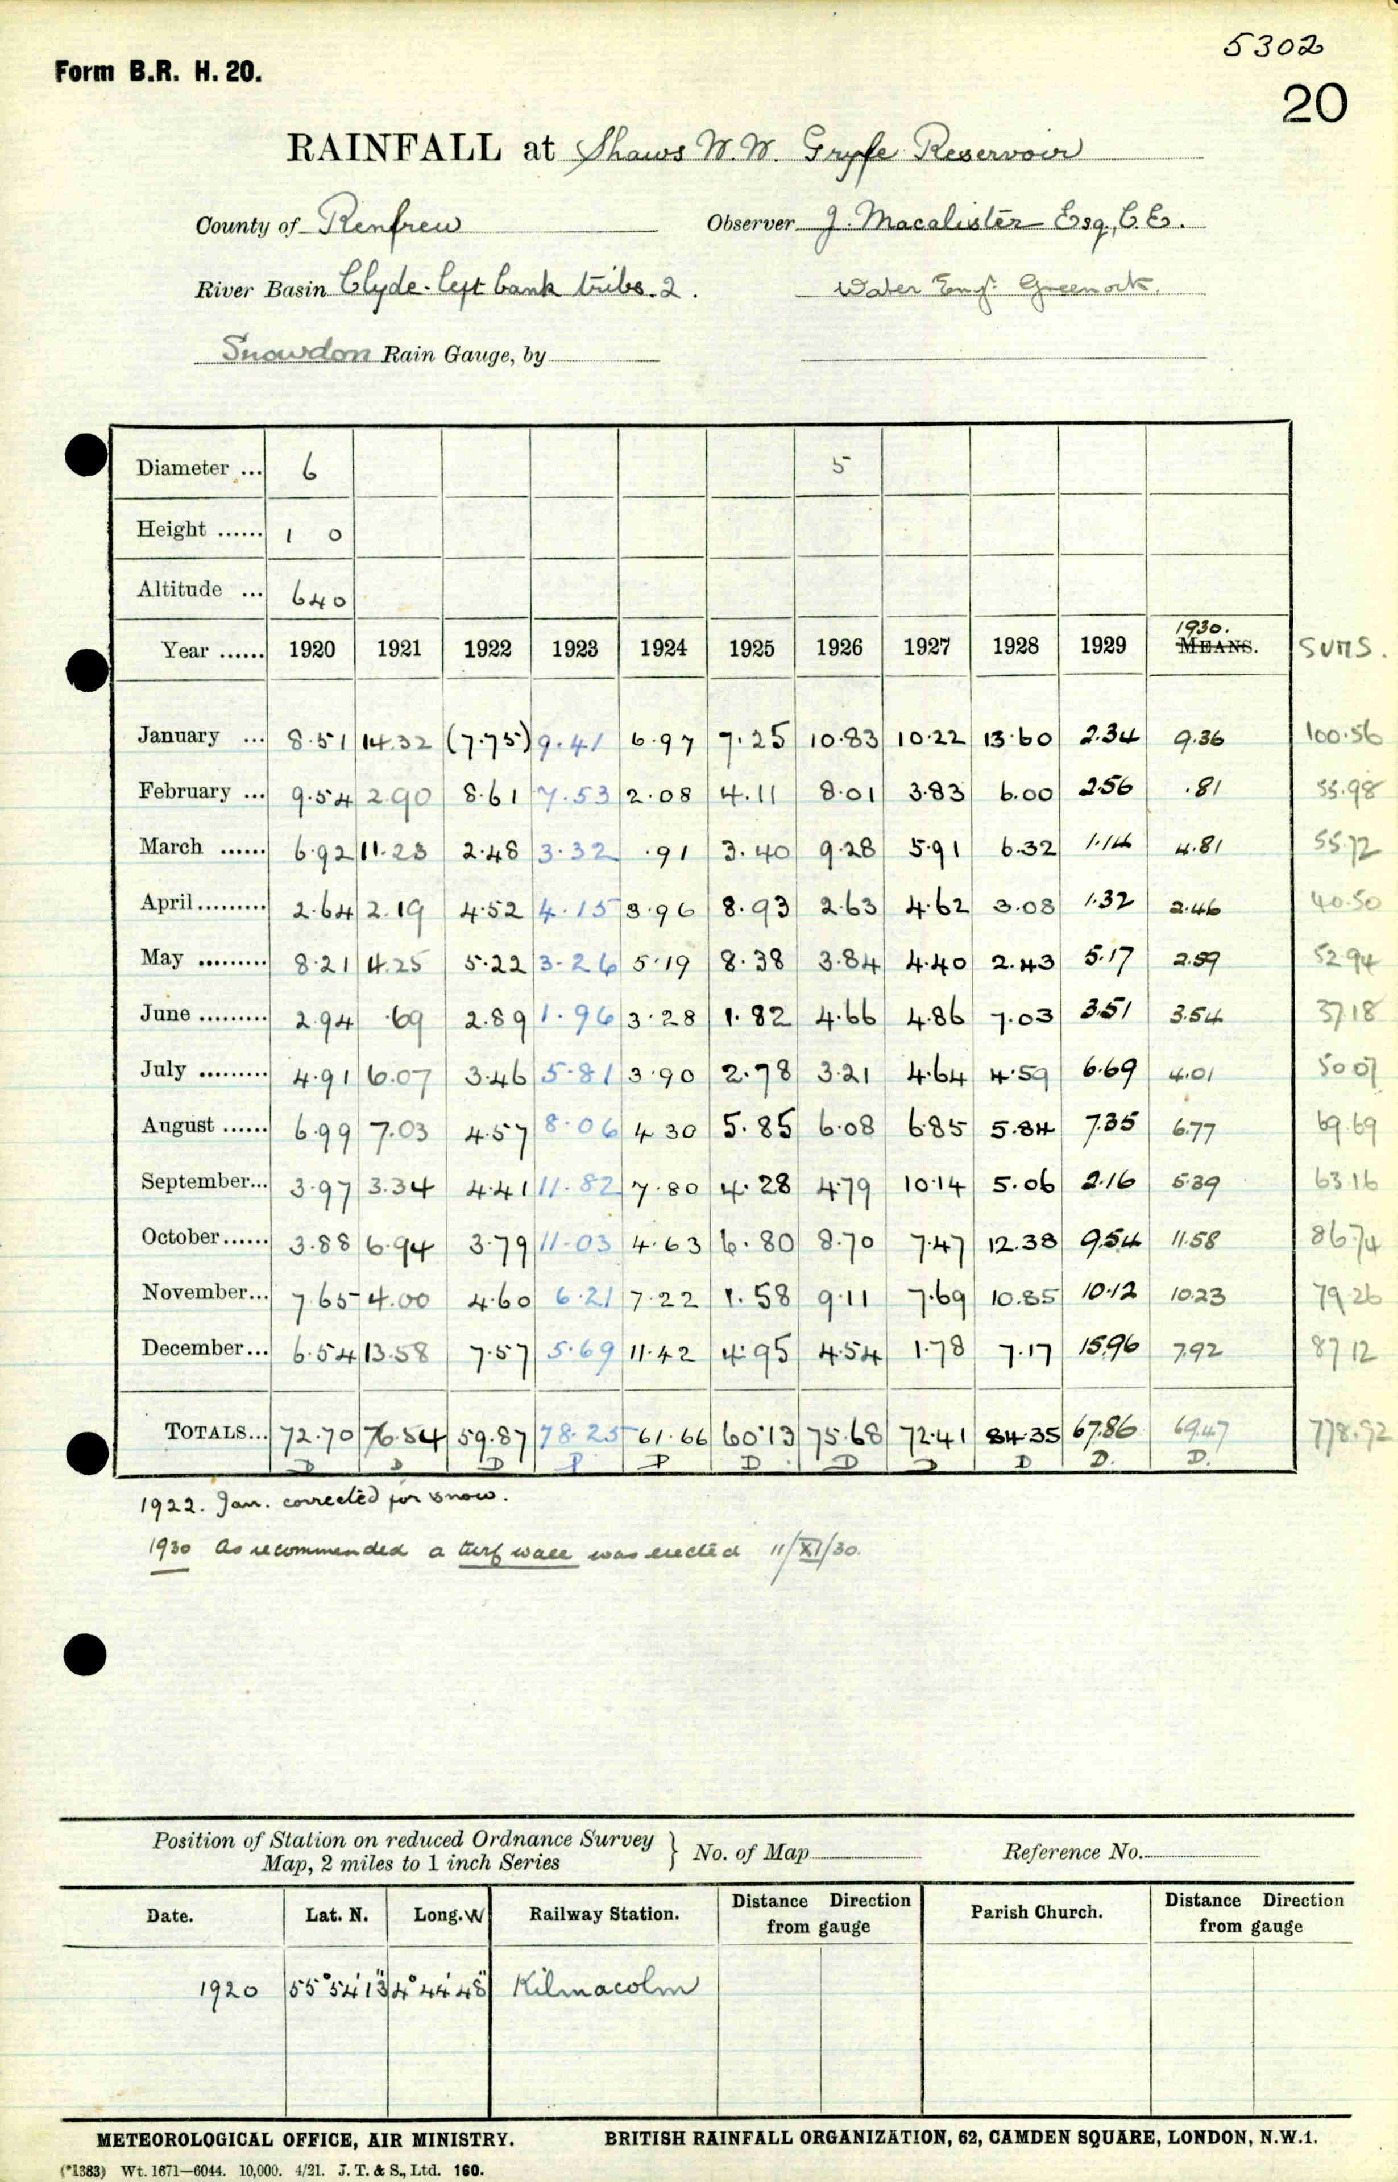 5302
Form B.R. H. 20.
20
RAINFALL at Shaws W.W. Gryfe Reservoir
County of Renfrew Observer J. Macalister Esq., C.E.
River Basin Clyde - left bank tribs. 2. Water Eng.r Greenock.
Snowdon Rain Gauge, by
Diameter ... 6 5
Height ...... 1 0
Altitude ... 640
1930.
Year ...... 1920 1921 1922 1923 1924 1925 1926 1927 1928 1929 MEANS. SUMS.
January ... 8.51 14.32 (7.75) 9.41 6.97 7.25 10.83 10.22 13.60 2.34 9.36 100.56
February ... 9.54 2.90 8.61 7.53 2.08 4.11 8.01 3.83 6.00 2.56 .81 55.98
March ...... 6.92 11.23 2.48 3.32 .91 3.40 9.28 5.91 6.32 1.14 4.81 55.72
April ......... 2.64 2.19 4.52 4.15 3.96 8.93 2.63 4.62 3.08 1.32 2.46 40.50
May ......... 8.21 4.25 5.22 3.26 5.19 8.38 3.84 4.40 2.43 5.17 2.59 52.94
June ......... 2.94 .69 2.89 1.96 3.28 1.82 4.66 4.86 7.03 3.51 3.54 37.18
July ......... 4.91 6.07 3.46 5.81 3.90 2.78 3.21 4.64 4.59 6.69 4.01 50.07
August ...... 6.99 7.03 4.57 8.06 4.30 5.85 6.08 6.85 5.84 7.35 6.77 69.69
September... 3.97 3.34 4.41 11.82 7.80 4.28 4.79 10.14 5.06 2.16 5.39 63.16
October ...... 3.88 6.94 3.79 11.03 4.63 6.80 8.70 7.47 12.38 9.54 11.58 86.74
November... 7.65 4.00 4.60 6.21 7.22 1.58 9.11 7.69 10.85 10.12 10.23 79.26
December... 6.54 13.58 7.57 5.69 11.42 4.95 4.54 1.78 7.17 15.96 7.92 87.12
TOTALS... 72.70 76.54 59.87 78.25 61.66 60.13 75.68 72.41 84.35 67.86 69.47 778.92
D D D P P D D D D D. D.
1922. Jan. corrected for snow.
1930 As recommended a turf wall was erected 11/XI/30.
Position of Station on reduced Ordnance Survey
Map, 2 miles to 1 inch Series } No. of Map Reference No.
Date. Lat. N. Long. W Railway Station. Distance Direction from gauge Parish Church. Distance Direction from gauge
1920 55°54'13" 4°44'48" Kilmacolm
METEOROLOGICAL OFFICE, AIR MINISTRY. BRITISH RAINFALL ORGANIZATION, 62, CAMDEN SQUARE, LONDON, N.W.1.
(*1383) Wt. 1671—6044. 10,000. 4/21. J. T. & S., Ltd. 160.